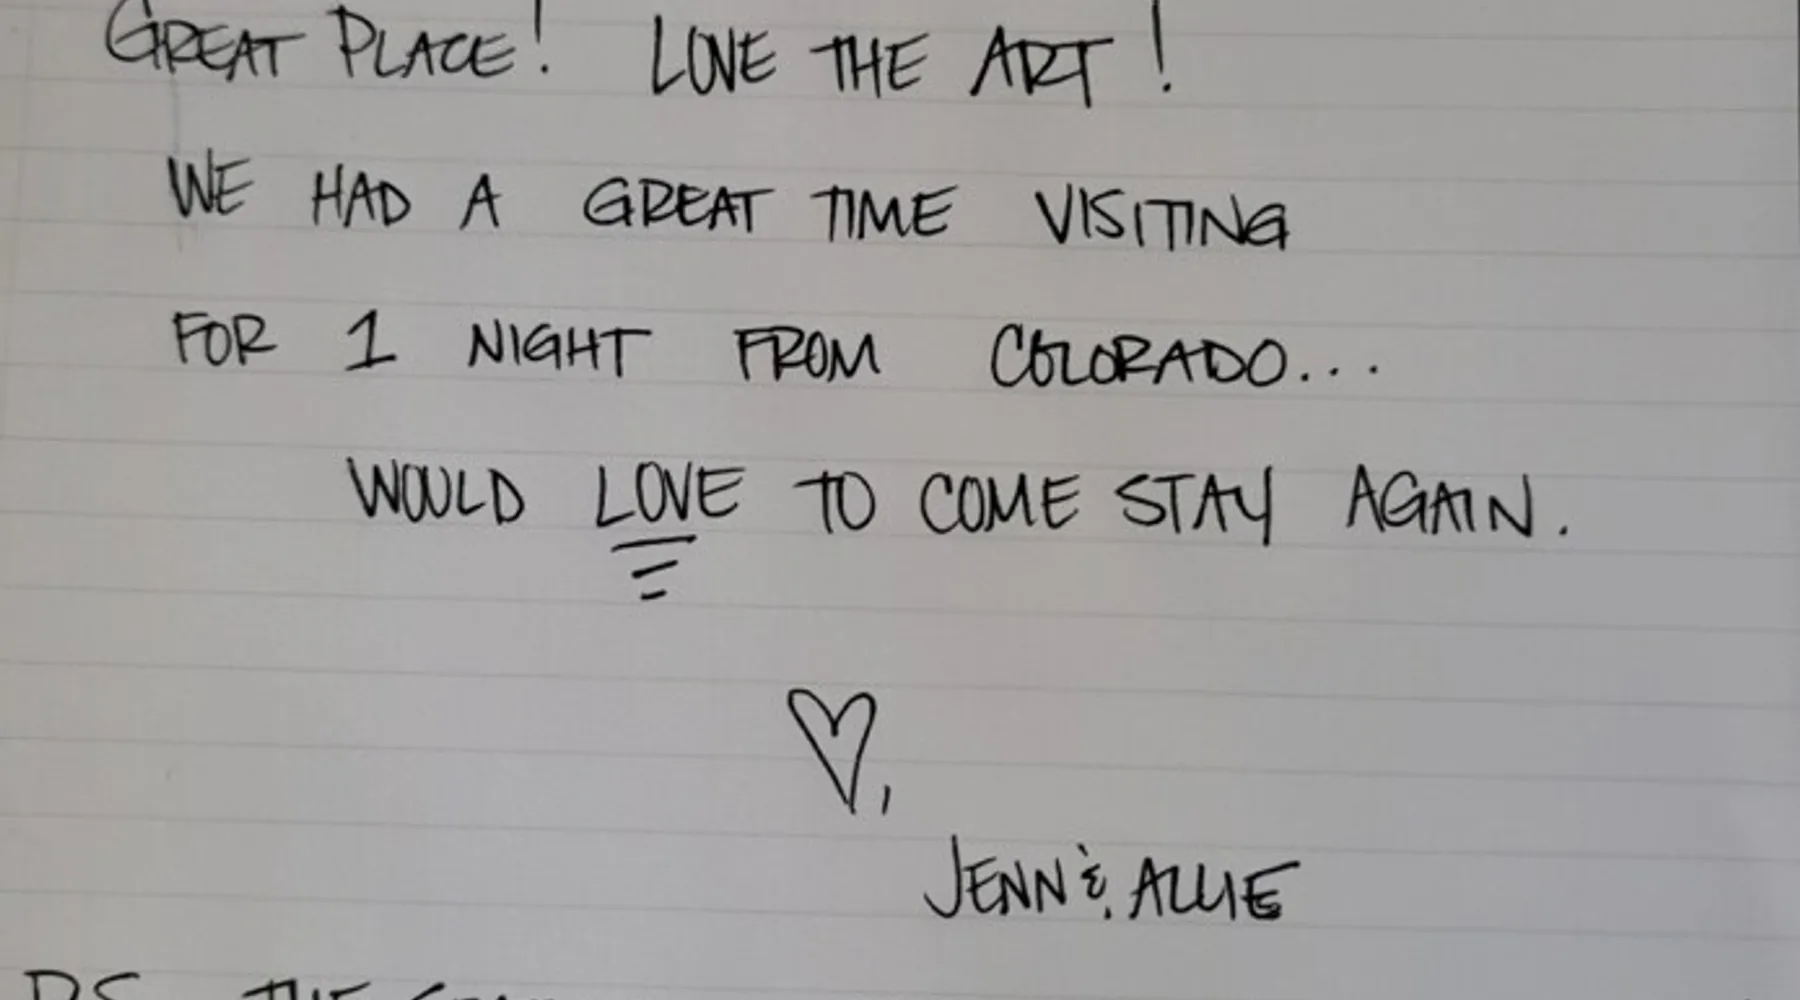 GREAT PLACE! LOVE THE ART!
WE HAD A GREAT TIME VISITING
FOR 1 NIGHT FROM COLORADO...
WOULD LOVE TO COME STAY AGAIN.
♡,
JENN & ALLIE
PS THE